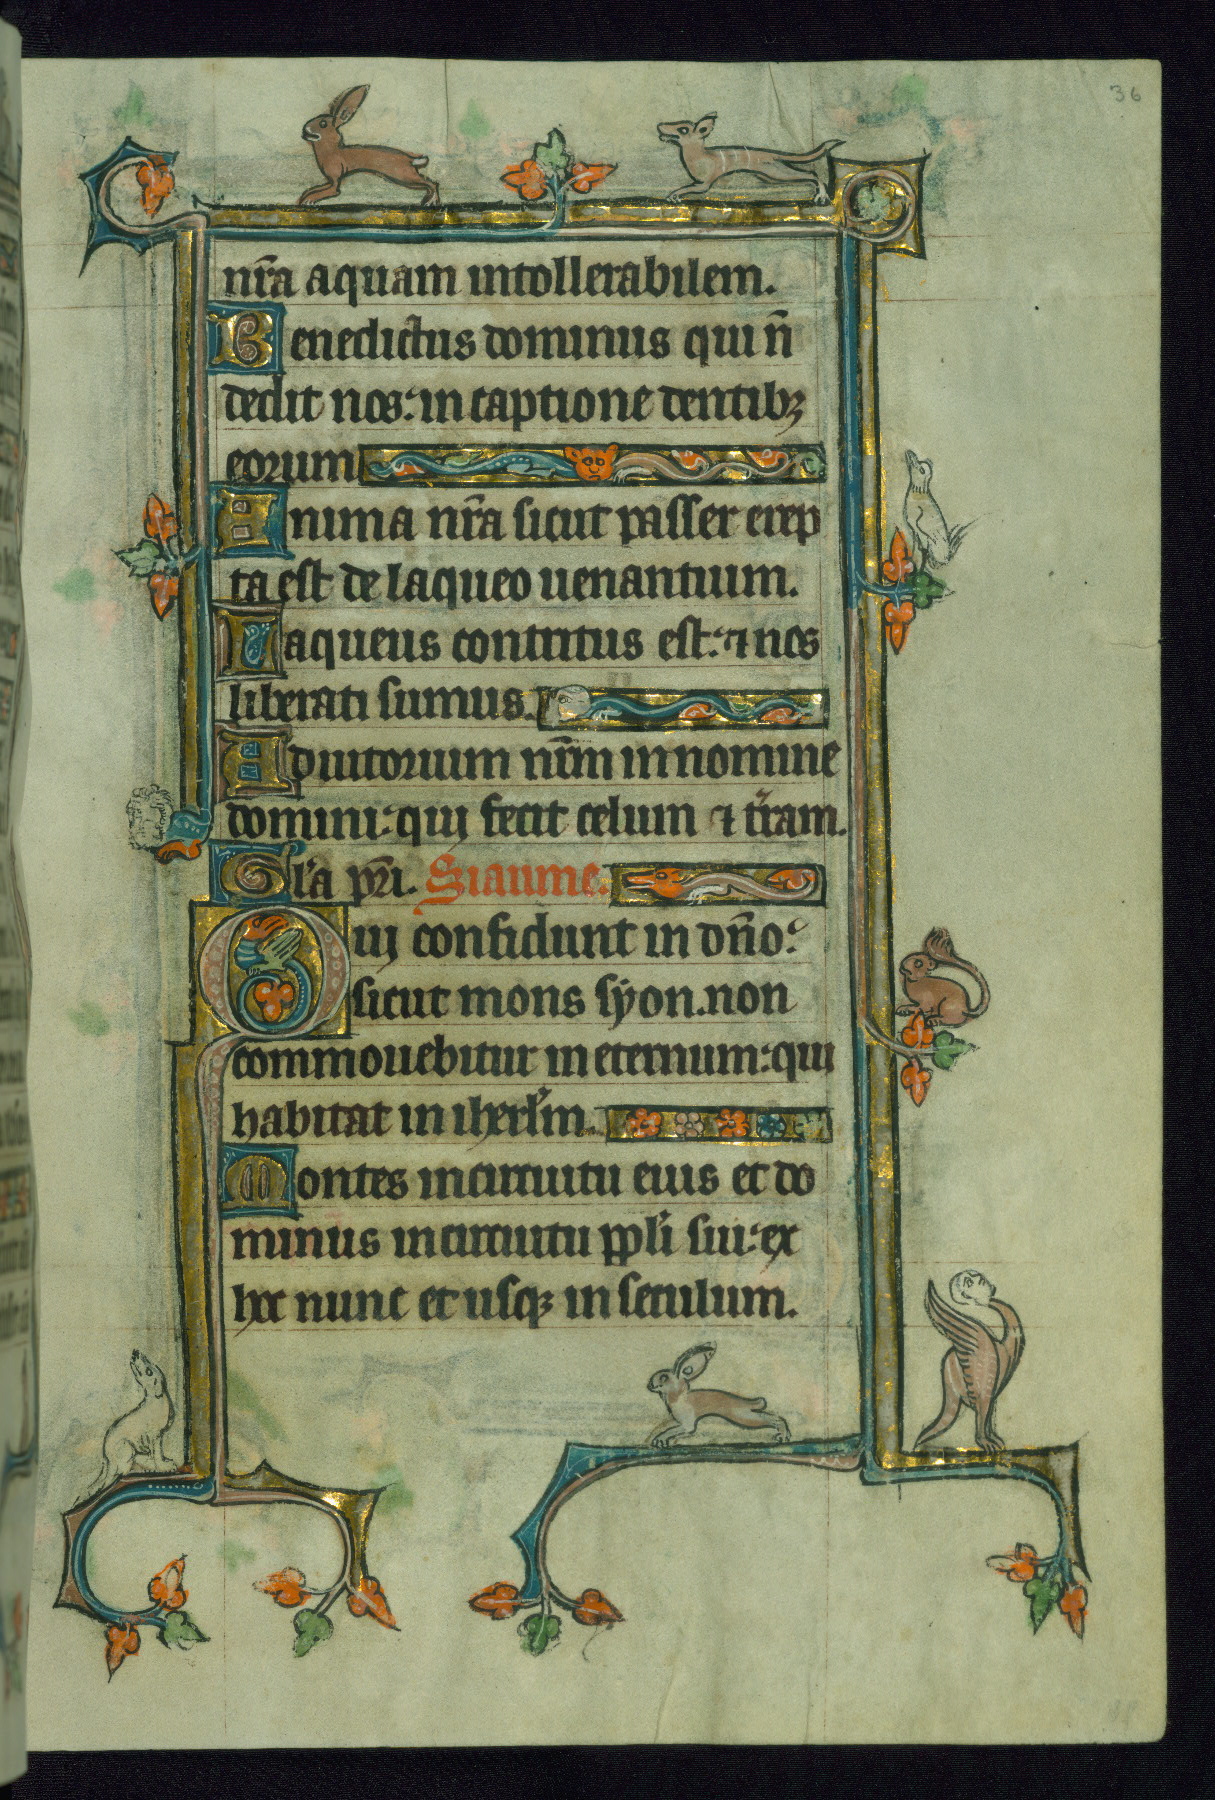 36
nr̄a aquam intollerabilem.
Benedictus dominus qui n̄
dedit nos: in captione dentibꝫ
eorum
Anima nr̄a sicut passer erep
ta est de laqueo uenantium.
Laqueus contritus est: ⁊ nos
liberati sumus.
Adiutorium nr̄m in nomine
domini: qui fecit celum ⁊ t̛ram.
Gl'a pr̄i. Siaume.
Qui confidunt in dn̄o:
sicut mons syon. non
commouebitur in eternum: qui
habitat in iherl'm.
Montes in circuitu eius et do
minus in circuitu ppl'i sui: ex
hoc nunc et usqꝫ in seculum.